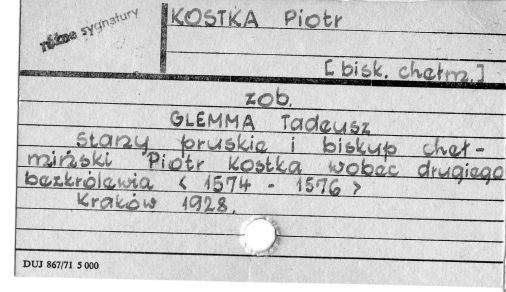 różne sygnatury
KOSTKA Piotr
[bisk. chełm.]
zob.
GLEMMA Tadeusz
Stany pruskie i biskup cheł-
miński Piotr Kostka wobec drugiego
bezkrólewia < 1574 - 1576 >
Kraków 1928.
DUJ 867/71 5 000